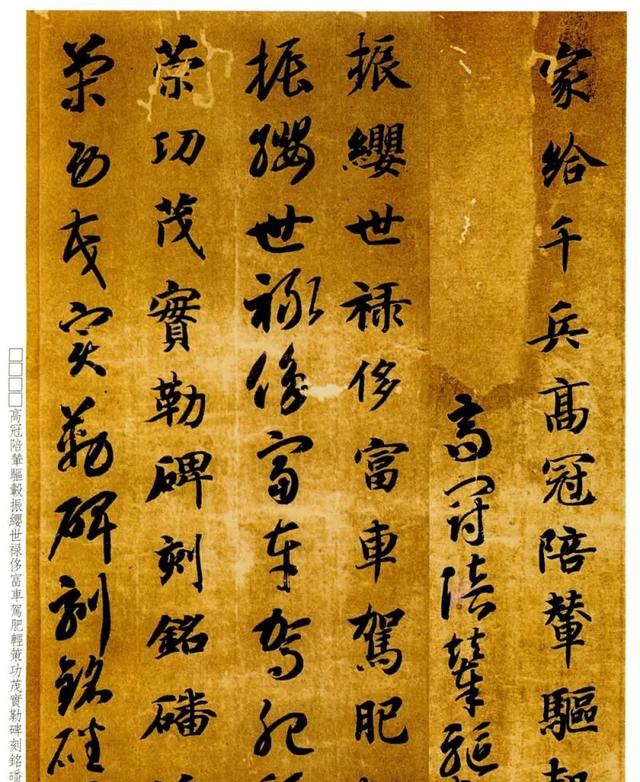 家給千兵高冠陪輦驅
高冠陪輦驅
振纓世禄侈富車駕肥
振纓世禄侈富車駕肥
策功茂實勒碑刻銘磻
策功茂實勒碑刻銘磻
□□□□高冠陪輦驅轂振纓世禄侈富車駕肥輕策功茂實勒碑刻銘磻